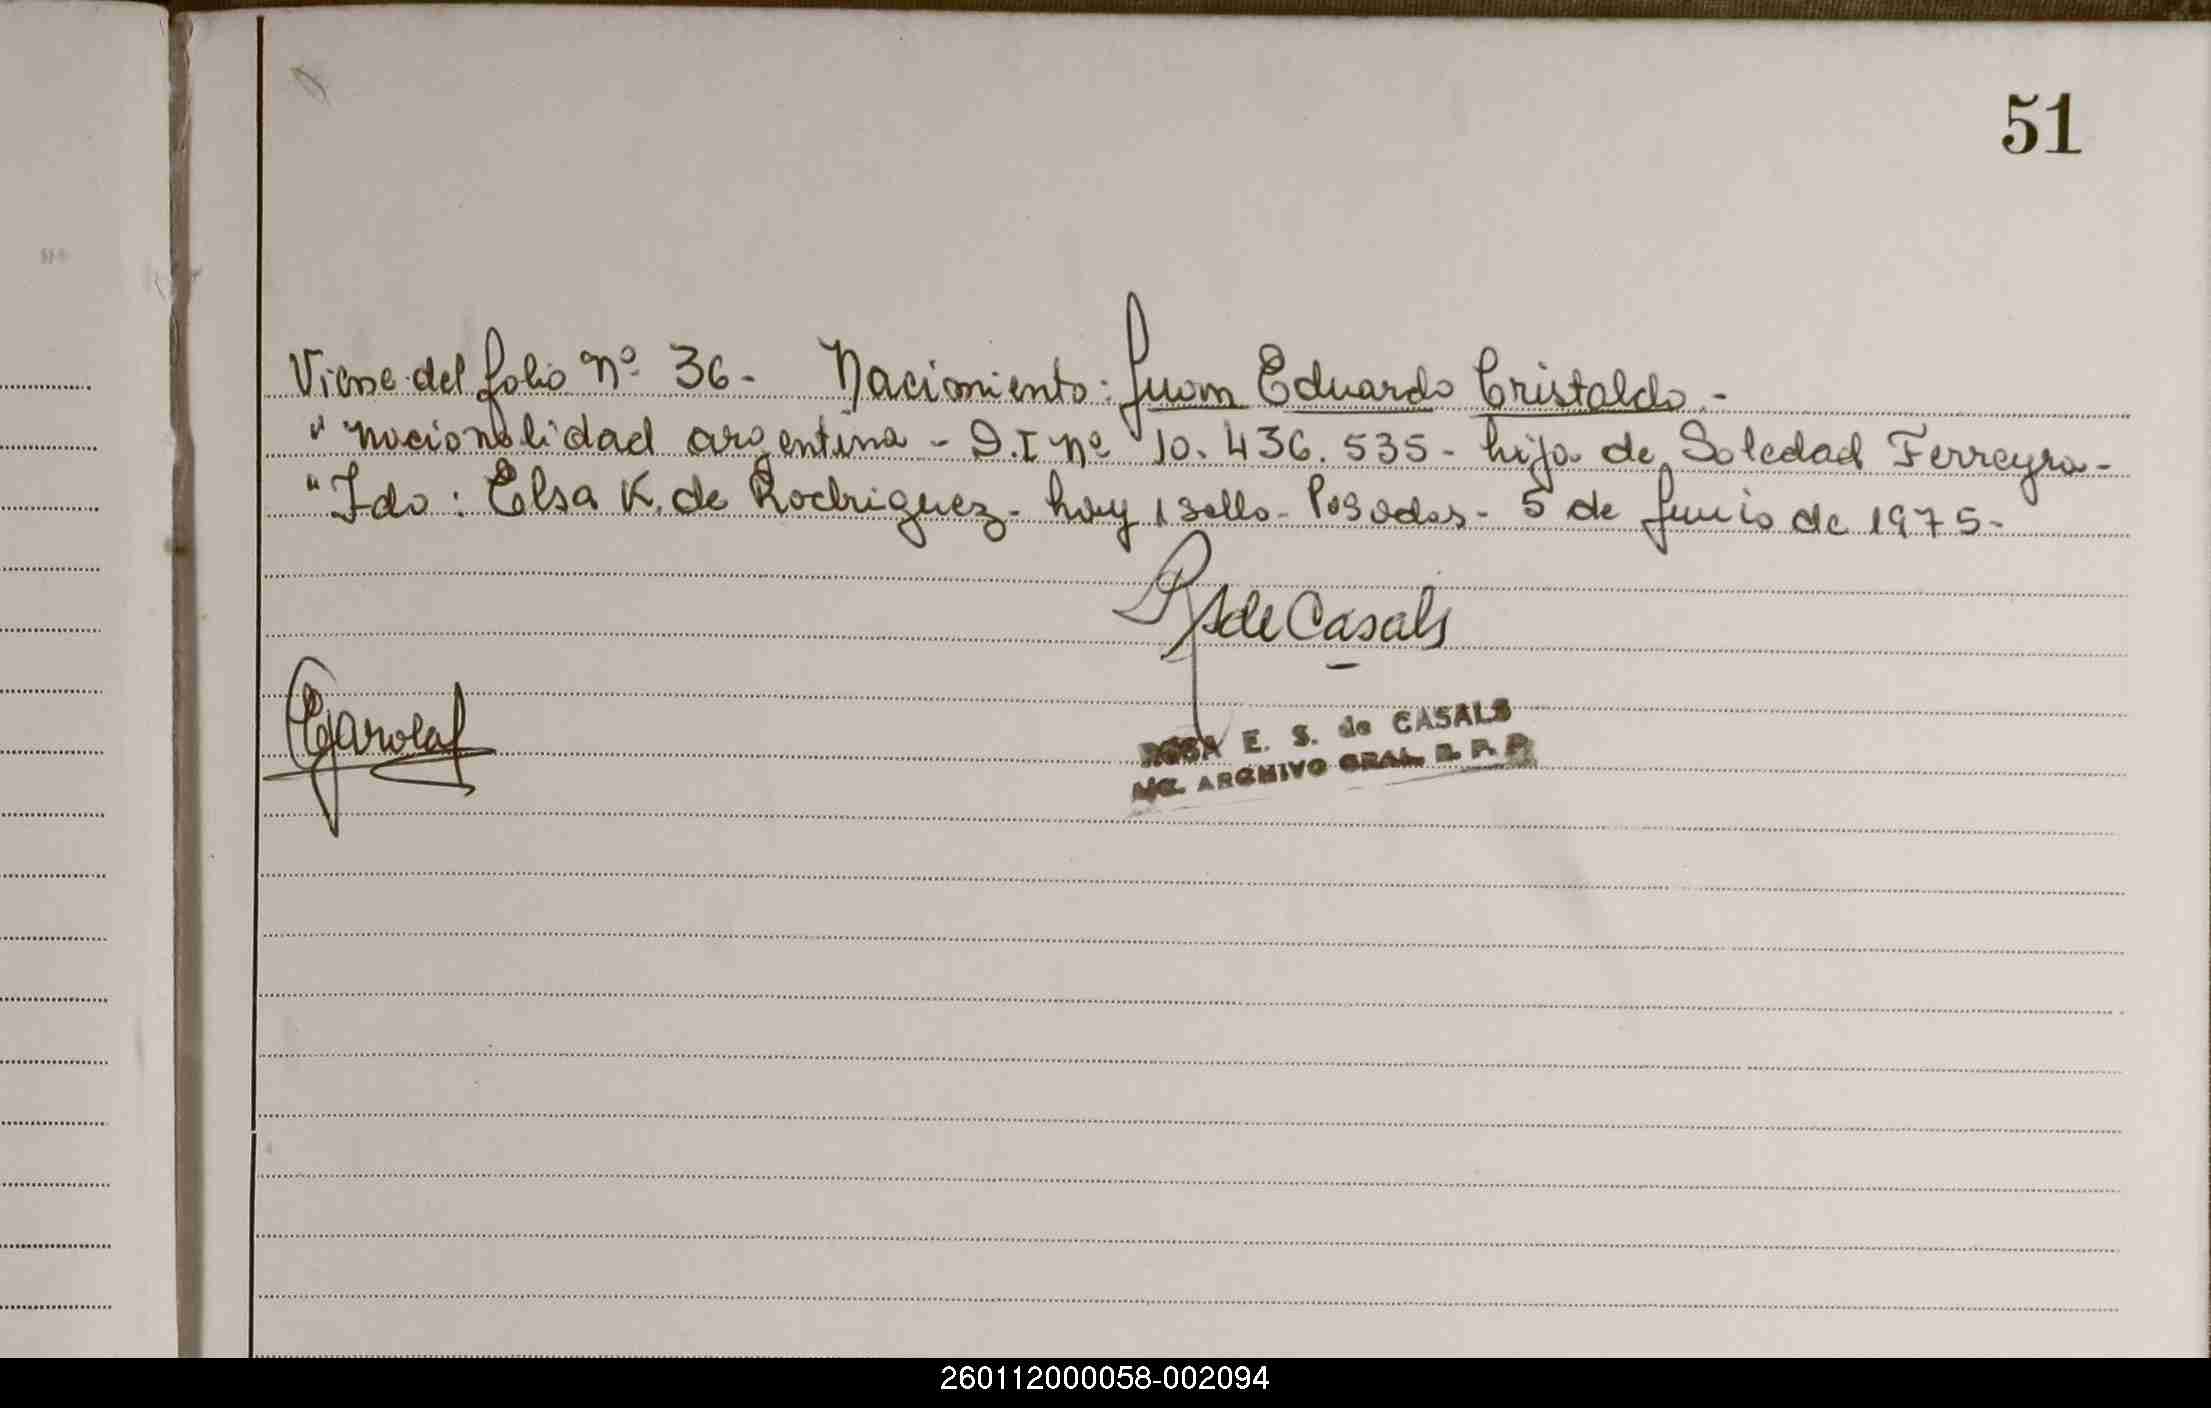 51
Viene del folio Nº 36- Nacimiento: Juan Eduardo Cristaldo.-
" nacionalidad argentina - D.I Nº 10.436.535- hijo de Soledad Ferreyra-
" Fdo: Elsa K. de Rodriguez- hay 1 sello- Posadas- 5 de Junio de 1975-
de Casals
ROSA E. S. de CASALS
ARCHIVO GRAL. R. P. P.
260112000058-002094